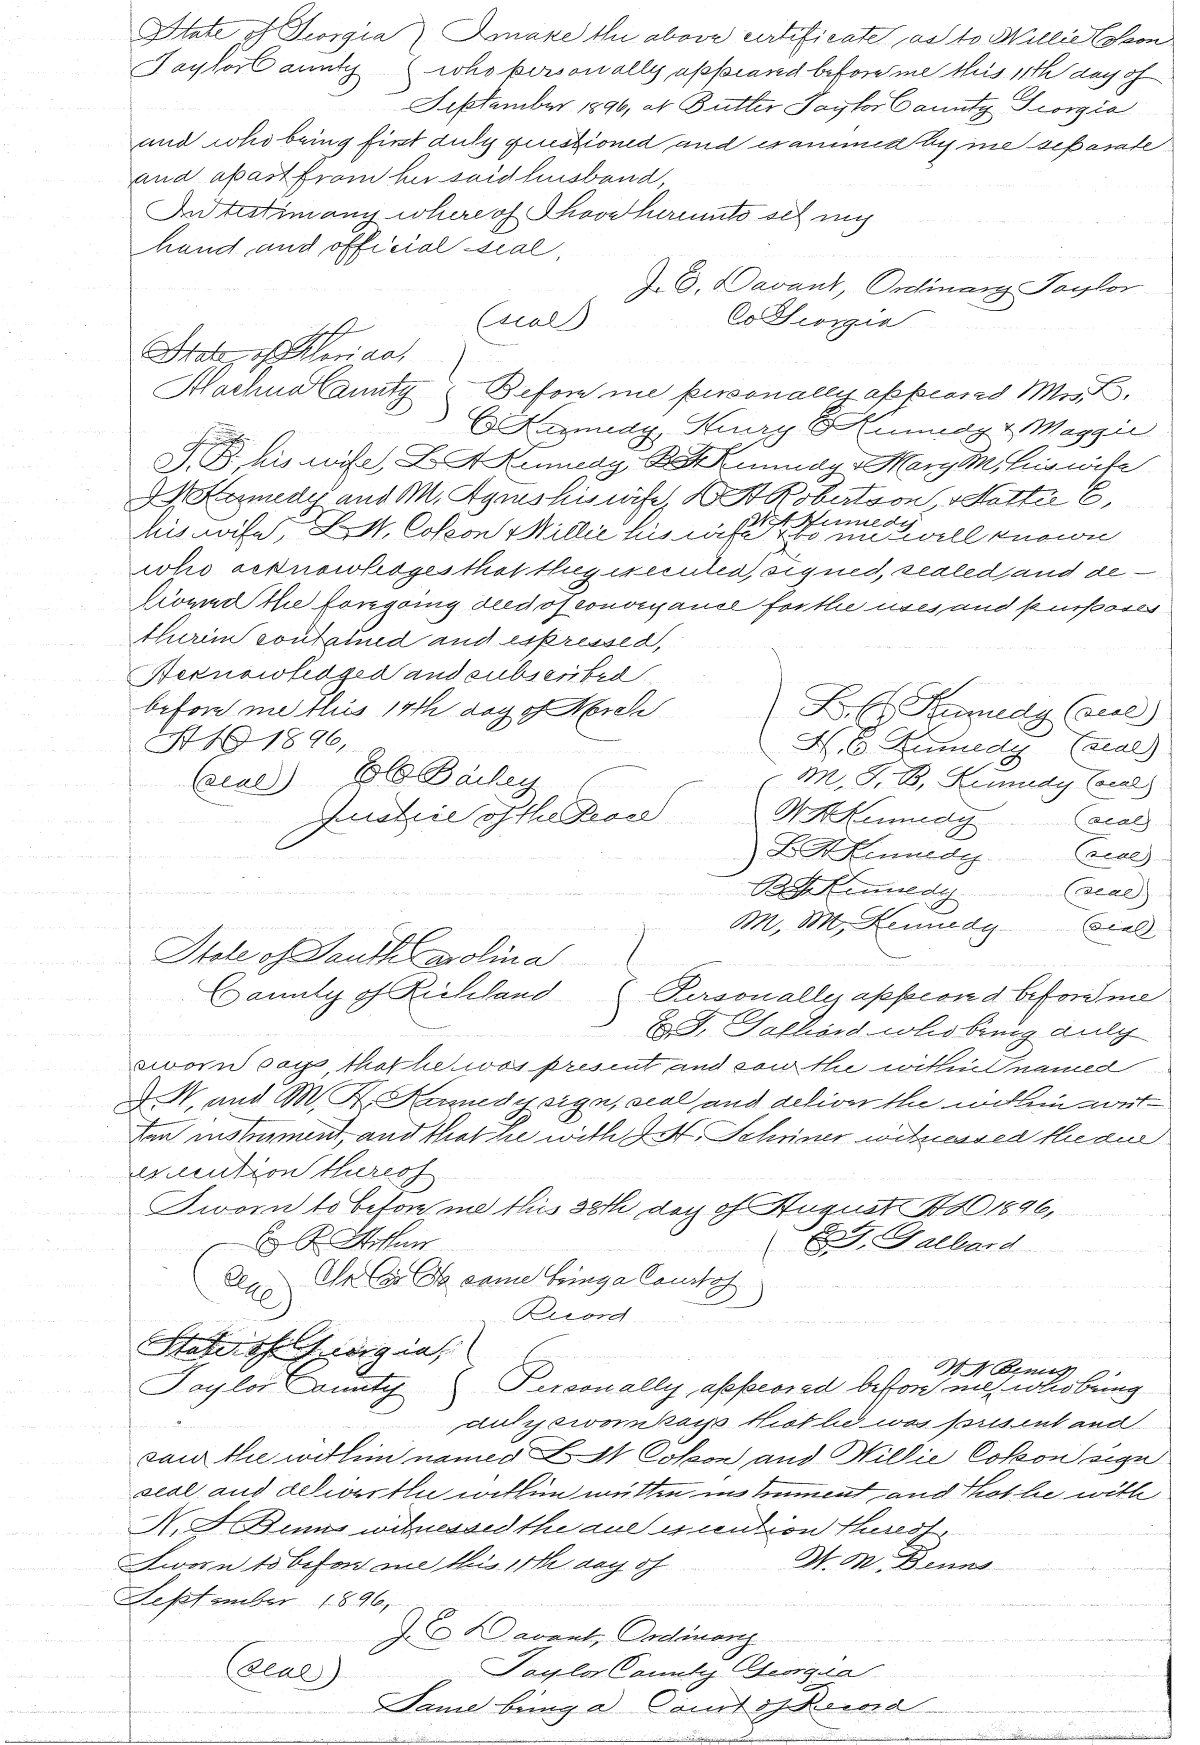 State of Georgia } I make the above certificate as to Willie Colson
Taylor County } who personally appeared before me this 11th day of
September 1896, at Butler Taylor County Georgia
and who being first duly questioned and examined by me separate
and apart from her said husband,
In testimony where of I have hereunto set my
hand and official seal,
J. E. Davant, Ordinary Taylor
(seal) Co Georgia
State of Florida,
Alachua County } Before me personally appeared Mrs,
Kennedy, Henry E Kennedy & Maggie
T. B, his wife, L A Kennedy, B F Kennedy & Mary M, his wife
J W Kennedy and M, Agnes his wife, A Robertson, & Hattie C,
W A Kennedy
his wife, L W, Colson & Willie his wife & to me well known
who acknowledges that they executed, signed, sealed and de-
livered the foregoing deed of conveyance for the uses and purposes
therein contained and expressed,
Acknowledged and subscribed
before me this 17th day of March
A D 1896,
L. C. Kennedy (seal)
H, E Kennedy (seal)
(seal) Bailey
M, T, B, Kennedy (seal)
Justice of the Peace
W A Kennedy (seal)
L A Kennedy (seal)
B F Kennedy (seal)
M, M, Kennedy (seal)
State of South Carolina
County of Richland } Personally appeared before me
E F. Gaillard who being duly
sworn says, that he was present and saw the within named
J. W, and M, A, Kennedy sign, seal and deliver the within writ-
ten instrument, and that he with J H. Schriner witnessed the due
execution thereof
Sworn to before me this 28th day of August A D 1896,
E R Arthur E. F. Galbard
(seal) same being a Court of
Record
State of Georgia,
W N Benns
Taylor County } Personally appeared before me, who being
duly sworn says that he was present and
saw the within named L W Colson and Willie Colson sign
seal and deliver the within written instrument and that he with
N, J Benns witnessed the due execution thereof.
Sworn to before me this 11th day of W. M. Benns
September 1896,
J. E Davant, Ordinary
(seal) Taylor County Georgia
Same being a Court of Record